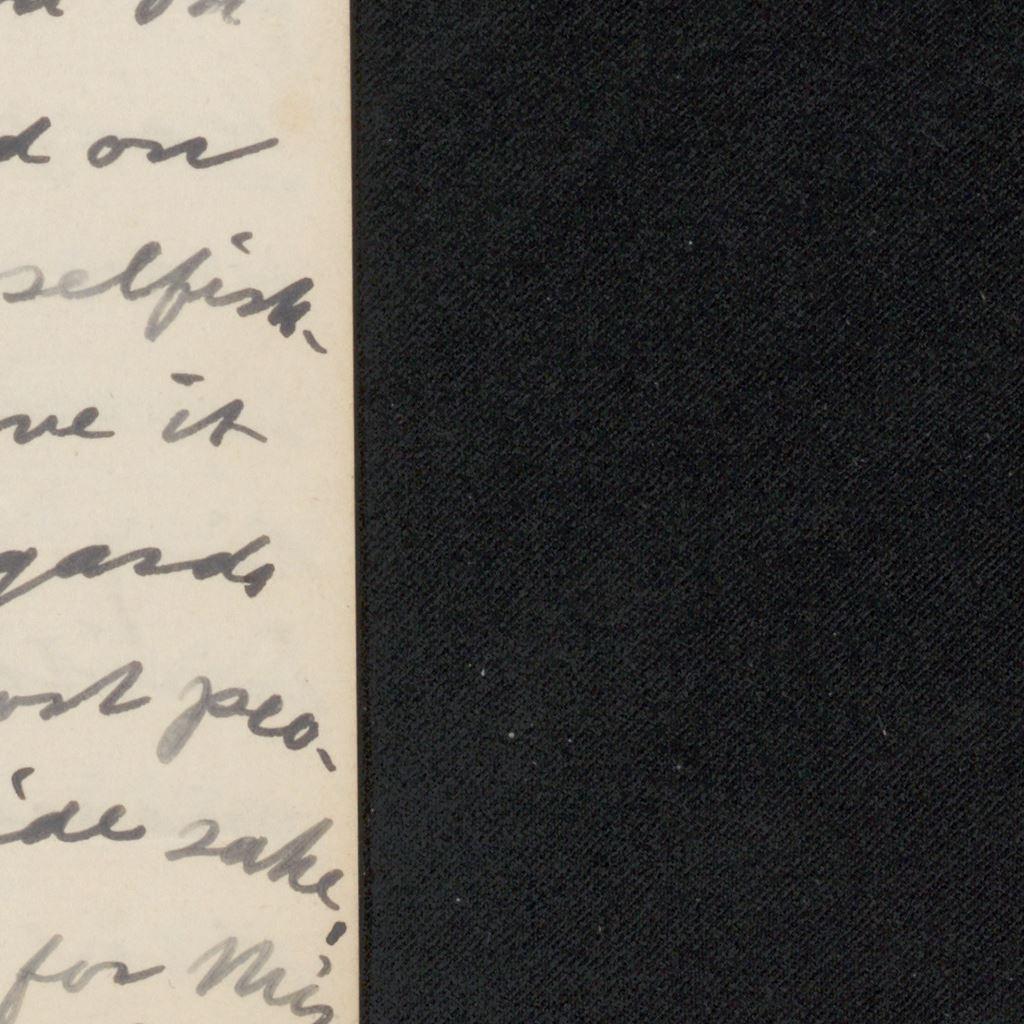 d on
selfish-
ve it
gards
ost peo-
ide sake!
for Mis